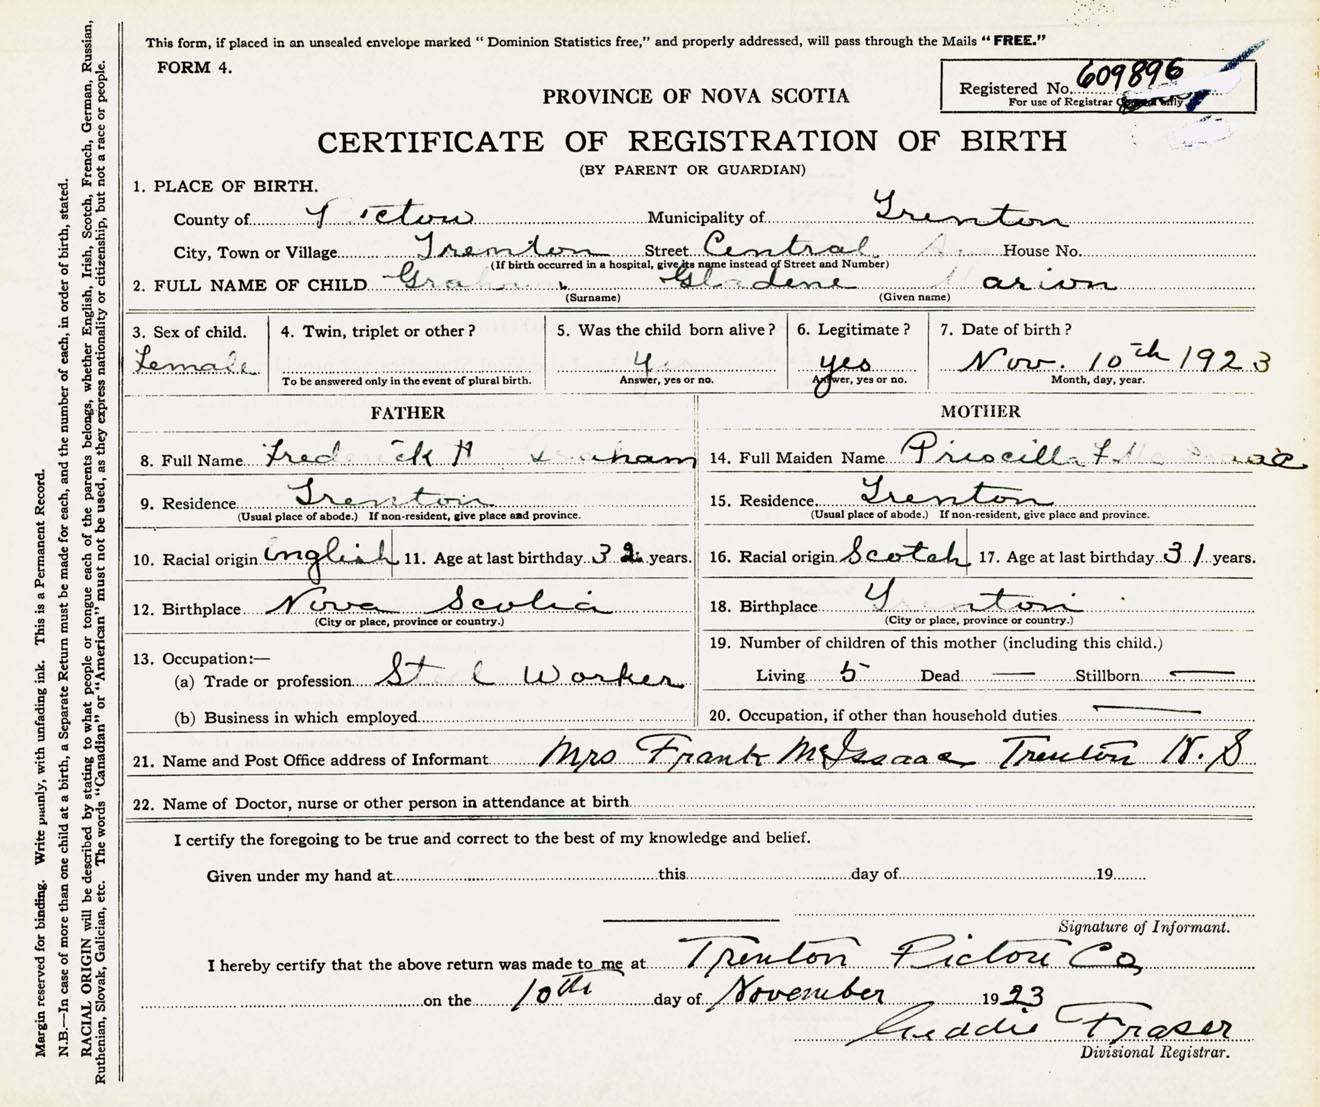 This form, if placed in an unsealed envelope marked "Dominion Statistics free," and properly addressed, will pass through the Mails "FREE."
FORM 4.
Registered No. 609896
For use of Registrar only
PROVINCE OF NOVA SCOTIA
CERTIFICATE OF REGISTRATION OF BIRTH
(BY PARENT OR GUARDIAN)
1. PLACE OF BIRTH.
County of Pictou Municipality of Trenton
City, Town or Village Trenton Street Central House No.
(If birth occurred in a hospital, give its name instead of Street and Number)
2. FULL NAME OF CHILD Graham Gladene Marion
(Surname) (Given name)
3. Sex of child. 4. Twin, triplet or other? 5. Was the child born alive? 6. Legitimate? 7. Date of birth?
Female yes Nov. 10th 1923
To be answered only in the event of plural birth. Answer, yes or no. Answer, yes or no. Month, day, year.
FATHER MOTHER
8. Full Name Frederick H Graham 14. Full Maiden Name Priscilla F McIsaac
9. Residence Trenton 15. Residence Trenton
(Usual place of abode.) If non-resident, give place and province. (Usual place of abode.) If non-resident, give place and province.
10. Racial origin English 11. Age at last birthday 32 years. 16. Racial origin Scotch 17. Age at last birthday 31 years.
12. Birthplace Nova Scotia 18. Birthplace Trenton
(City or place, province or country.) (City or place, province or country.)
19. Number of children of this mother (including this child.)
13. Occupation:—
(a) Trade or profession Steel Worker Living 5 Dead — Stillborn —
(b) Business in which employed 20. Occupation, if other than household duties —
21. Name and Post Office address of Informant Mrs Frank McIsaac Trenton N. S
22. Name of Doctor, nurse or other person in attendance at birth
I certify the foregoing to be true and correct to the best of my knowledge and belief.
Given under my hand at this day of 19
Signature of Informant.
I hereby certify that the above return was made to me at Trenton Pictou Co,
on the 10th day of November 1923
Fraser
Divisional Registrar.
Margin reserved for binding. Write plainly, with unfading ink. This is a Permanent Record.
N.B.—In case of more than one child at a birth, a Separate Return must be made for each, and the number of each, in order of birth, stated.
RACIAL ORIGIN will be described by stating to what people or tongue each of the parents belongs, whether English, Irish, Scotch, French, German, Russian,
Ruthenian, Slovak, Galician, etc. The words "Canadian" or "American" must not be used, as they express nationality or citizenship, but not a race or people.